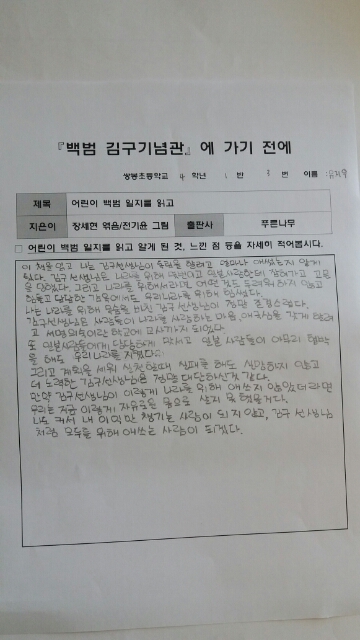 『백범 김구기념관』에 가기 전에
쌍봉초등학교 4 학년 1 반 3 번 이름 :유지우
제목 어린이 백범 일지를 읽고
지은이 장세현 엮음/전기윤 그림 출판사 푸른나무
□ 어린이 백범 일지를 읽고 알게 된 것, 느낀 점 등을 자세히 적어봅시다.
이 책을 읽고 나는 김구선생님이 독립을 하려고 얼마나 애썼는지 알게
됐다. 김구선생님은 나라를 위해 일본사람한테 잡혀가고 고문
을 당했다. 그리고 나라를 위해서라면 어떤 것도 두려워 하지 않고
힘들고 답답한 감옥에서도 우리나라를 위해 힘썼다.
나는 나라를 위해 목숨을 바친 김구선생님이 정말 존경스럽다.
김구선생님은 사람들이 나라를 사랑하는 마음, 애국심을 갖게 하려
고 서명의숙이란 학교에 교사가 되었다.
또 일본사람들에게 당당하게 맞서고 일본 사람들이 아무리 협박
을 해도 우리나라를 지켰다.
그리고 계획을 세워 실천할때 실패를 해도 실망하지 않고
더 노력한 김구선생님은 정말 대단하신것 같다.
만약 김구선생님이 이렇게 나라를 위해 애쓰지 않았더라면
우리는 지금 이렇게 자유로운 몸으로 살지 못 했을거다.
나도 커서 내 이익만 챙기는 사람이 되지 않고, 김구 선생님
처럼 모두를 위해 애쓰는 사람이 되겠다.